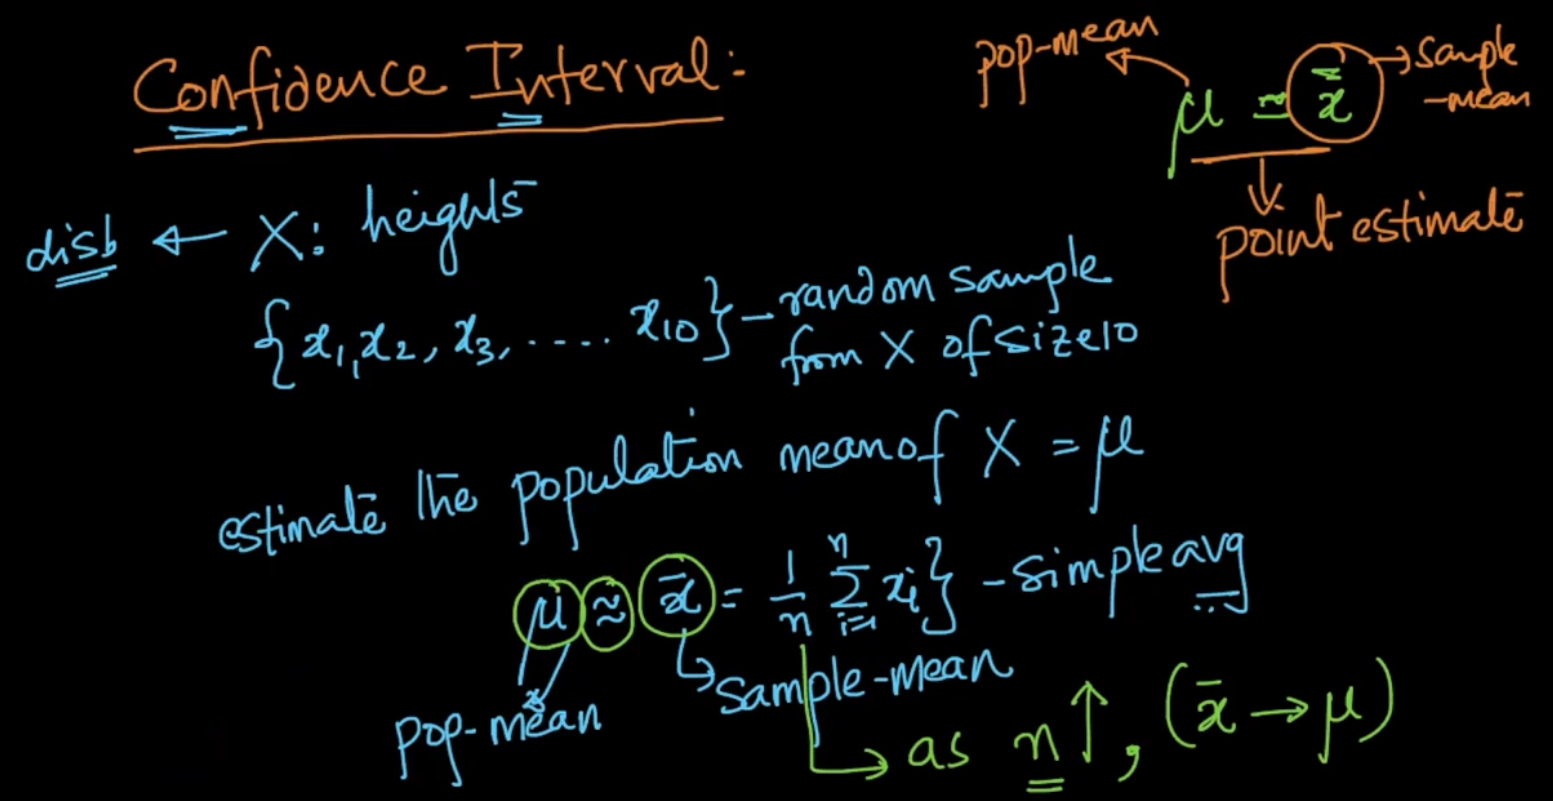 Confidence Interval:
pop-mean
μ ≃ x̄
sample
-mean
point estimate
dist ← X: heights
{x₁, x₂, x₃, ..... x₁₀} - random sample
from X of size 10
estimate the population mean of X = μ
μ ≈ x̄ = 1/n ∑ᵢ₌₁ⁿ xᵢ} - simple avg
pop-mean
sample-mean
as n↑, (x̄ → μ)